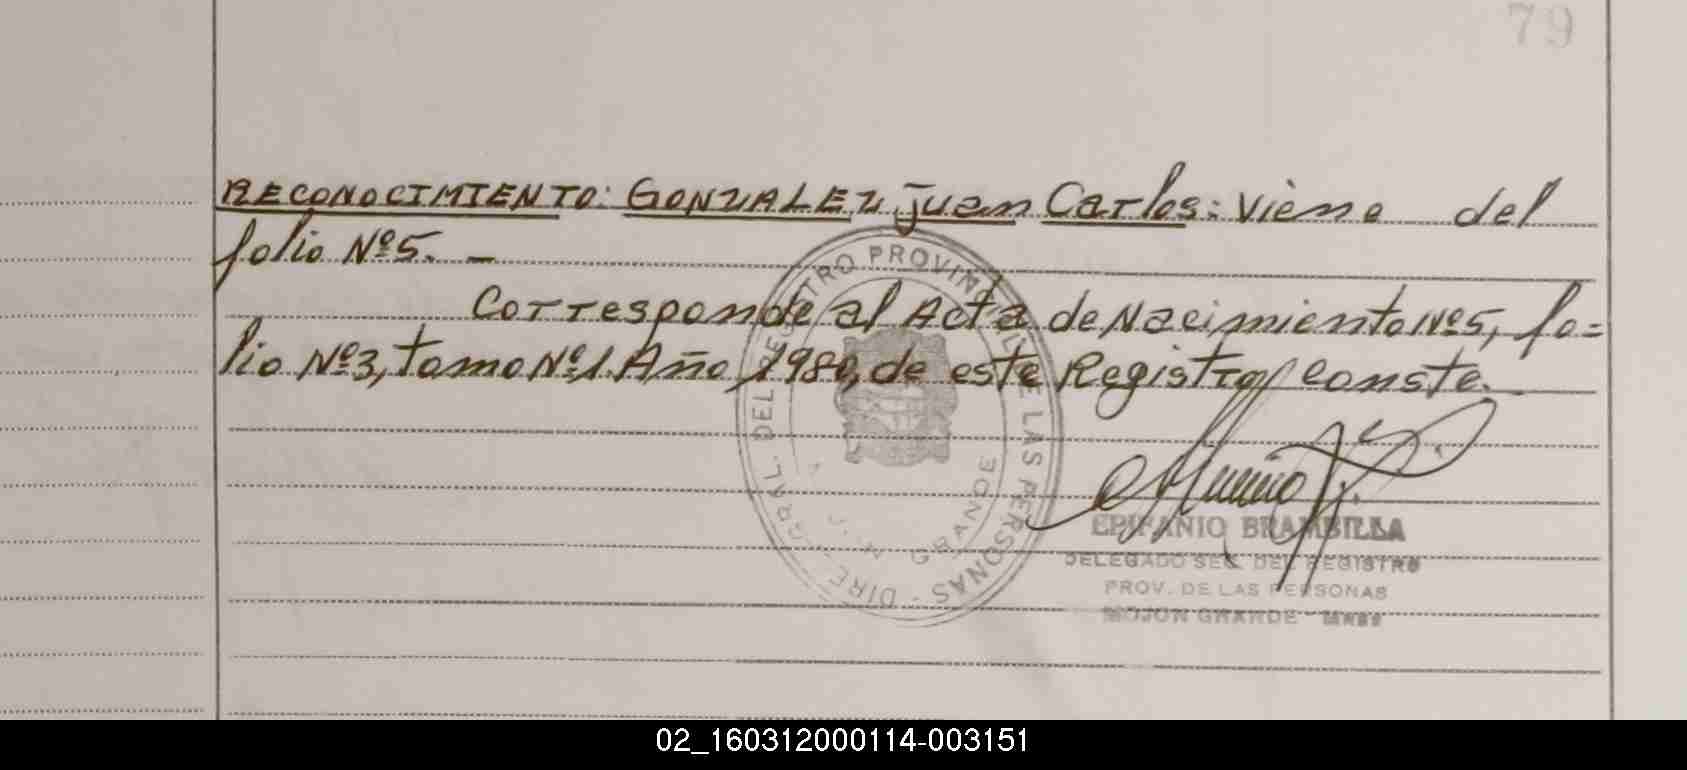 79
RECONOCIMIENTO: GONZALEZ Juan Carlos: Viene del
folio Nº5. —
Corresponde al Acta de Nacimiento Nº5, fo=
lio Nº3, tomo Nº1. Año 1980, de este Registro/ Conste.
DIRE. GRAL. DEL REGISTRO PROVINCIAL DE LAS PERSONAS -
GRANDE
EPIFANIO BRAMBILLA
DELEGADO SEC. DEL REGISTRO
PROV. DE LAS PERSONAS
MOJON GRANDE - MNES
02_160312000114-003151